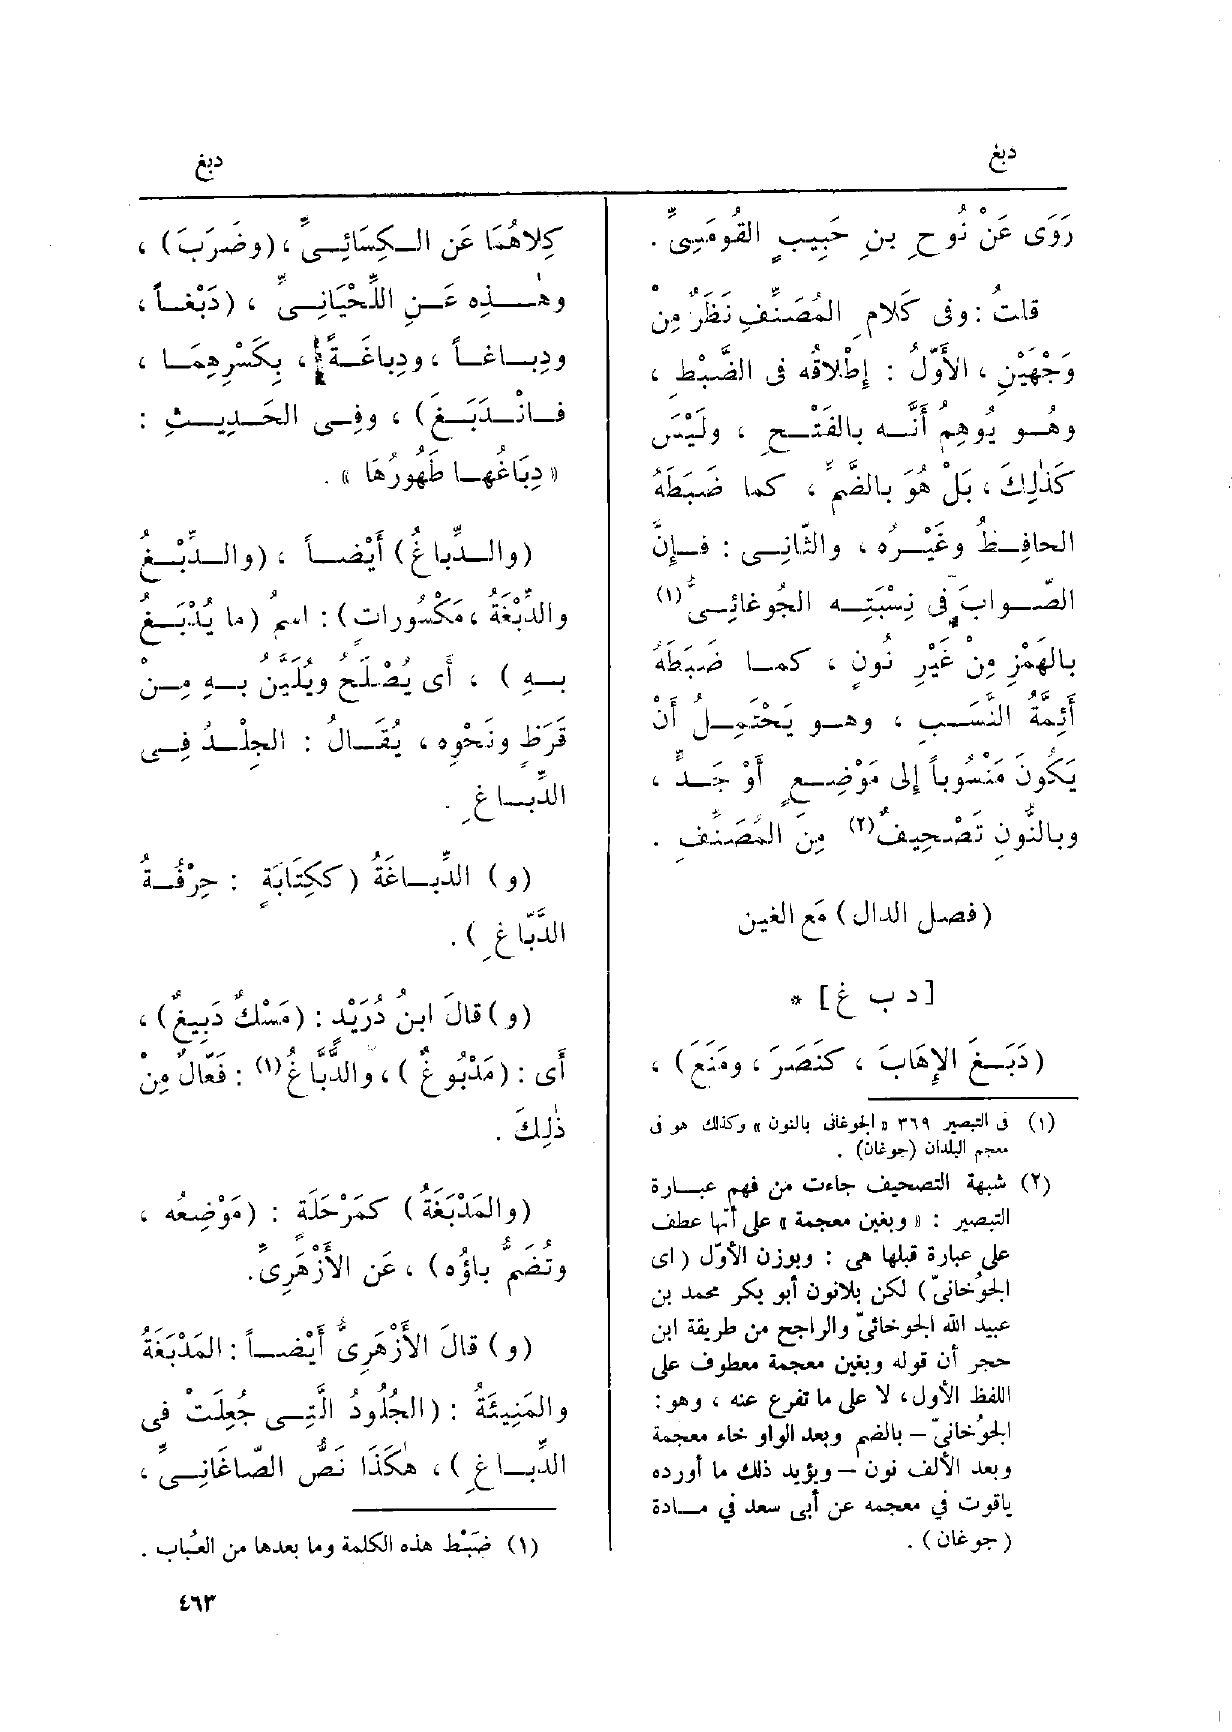 دبغ
دبغ
رَوَى عَنْ نُوحِ بنِ حَبِيبٍ القُومَسِيِّ .
قلتُ : وفى كَلامِ المُصَنِّفِ نَظَرٌ مِنْ
وَجْهَيْنِ ، الأَوّلُ : إِطْلاقُه فى الضَّبْطِ ،
وهُــو يُوهِمُ أَنَّــه بالفَتْــحِ ، ولَيْسَ
كَذٰلِكَ ، بَلْ هُوَ بالضَّمِّ ، كما ضَبَطَهُ
الحافِــظُ وغَيْــرُه ، والثّانِــى : فــإِنَّ
الصَّــوابَ فى نِسْبَتِــه الجُوغائِــىُّ (١)
بالهَمْزِ مِنْ غَيْرِ نُونٍ ، كمــا ضَبَطَهُ
أَئِمَّةُ النَّسَــبِ ، وهــو يَحْتَمِــلُ أَنْ
يَكُونَ مَنْسُوباً إِلى مَوْضِــعٍ أَوْ جَــدٍّ ،
وبالنُّونِ تَصْحِيفٌ (٢) مِنَ المُصَنِّفِ .
(فصل الدال) مَع الغين
[ د ب غ ] *
(دَبَــغَ الإِهَابَ ، كَنَصَرَ ، ومَنَعَ) ،
(١) فى التبصير ٣٦٩ « الجوغانى بالنون » وكذلك هو فى
معجم البلدان (جوغان) .
(٢) شبهة التصحيف جاءت من فهم عبــارة
التبصير : « وبغين معجمة » على أنّها عطف
على عبارة قبلها هى : وبوزن الأوّل ( اى
الجوُخانىّ ) لكن بلانون أبو بكر محمد بن
عبيد الله الجوخائىّ والراجح من طريقة ابن
حجر أن قوله وبغين معجمة معطوف على
اللفظ الأول، لا على ما تفرع عنه ، وهو :
الجوُخانىّ – بالضم وبعد الواو خاء معجمة
وبعد الألف نون – ويؤيد ذلك ما أورده
ياقوت في معجمه عن أبى سعد في مــادة
( جوغان ) .
كِلاهُمَا عَنِ الــكِسَائِــىِّ ، (وضَرَبَ) ،
وهــٰـذِه عَــنِ اللِّحْيَانِــىِّ ، (دَبْغــاً ،
ودِبــاغــاً ، ودِباغَــةً) ، بِكَسْرِهِمَــا ،
فــانْــدَبَــغَ) ، وفِــى الحَــدِيــثِ :
« دِبَاغُهــا طَهُورُهَا » .
(والــدِّباغُ) أَيْضــاً ، (والــدِّبْــغُ
والدِّبْغَةُ ، مَكْسُورات) : اسمُ (ما يُدْبَــغُ
بــهِ ) ، أَى يُصْلَحُ ويُلَيَّن بــهِ مِــنْ
قَرَظٍ ونَحْوِه ، يُقَــالُ : الجِلْــدُ فِــى
الدِّبــاغِ .
(و) الدِّبــاغَةُ (ككِتابَةٍ : حِرْفَــةُ
الدَّبّاغِ ) .
(و) قالَ ابنُ دُرَيْدٍ : (مَسْكٌ دَبِيغٌ) ،
أَى : (مَدْبُوغٌ ) ، والدَّبّاغُ (١) : فَعّالٌ مِنْ
ذٰلِكَ .
(والمَدْبَغَةُ) كمَرْحَلَةٍ : (مَوْضِعُه ،
وتُضَمُّ باؤُه) ، عَنِ الأَزْهَرِىِّ .
(و) قالَ الأَزْهَرِىُّ أَيْضــاً : المَدْبَغَةُ
والمَنِيئَةُ : (الجُلُودُ الَّتِــى جُعِلَتْ فى
الدِّبــاغِ ) ، هٰكَذَا نَصُّ الصّاغَانِــىِّ ،
(١) ضَبْط هذه الكلمة وما بعدها من العُباب .
٤٦٣